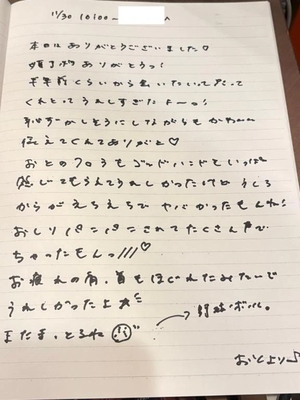 11/30 10:00〜
本日はありがとうございました♡
ありがとうっ!
半年前くらいから会いたいって思って
くれとってうれしすぎたよーっ!
恥ずかしそうにしながらも
伝えてくれてありがと♡
おとのフロうもゴッドハンドもいっぱい
感じてもらえてうれしかったけど うしろ
からがえちえちで ヤバかったもんね!
おしりパンパンされてたくさん声で
ちゃったもんっ///♡
お疲れの肩、首もほぐれたみたいで
うれしかったよ
またま、とるね
野球ボール。
おとより♪